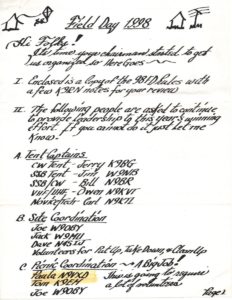 Field Day 1998
Hi Folks!
It's time your chairman started to get
us organized so Here Goes
I. Enclosed is a copy of the 98 FD Rules with a
few K3EN notes for your review
II. The following people are asked to continue
to provide Leadership to this year's winning
effort. If you cannot do it just let me
know.
A. Tent Captains
CW Tent - Jerry
SSB Tent - Jim
SSB/CW - Bill
VHF/UHF - Owen
Novice/Tech - Carl
B. Site Coordination
Joe W9OBY
Jack
Dave
Volunteers for Put Up, Take Down, & Clean Up
C. Picnic Coordination - A Big Job!
Paula This is going to require
Tom a lot of volunteers
Joe W9OBY
Page 1